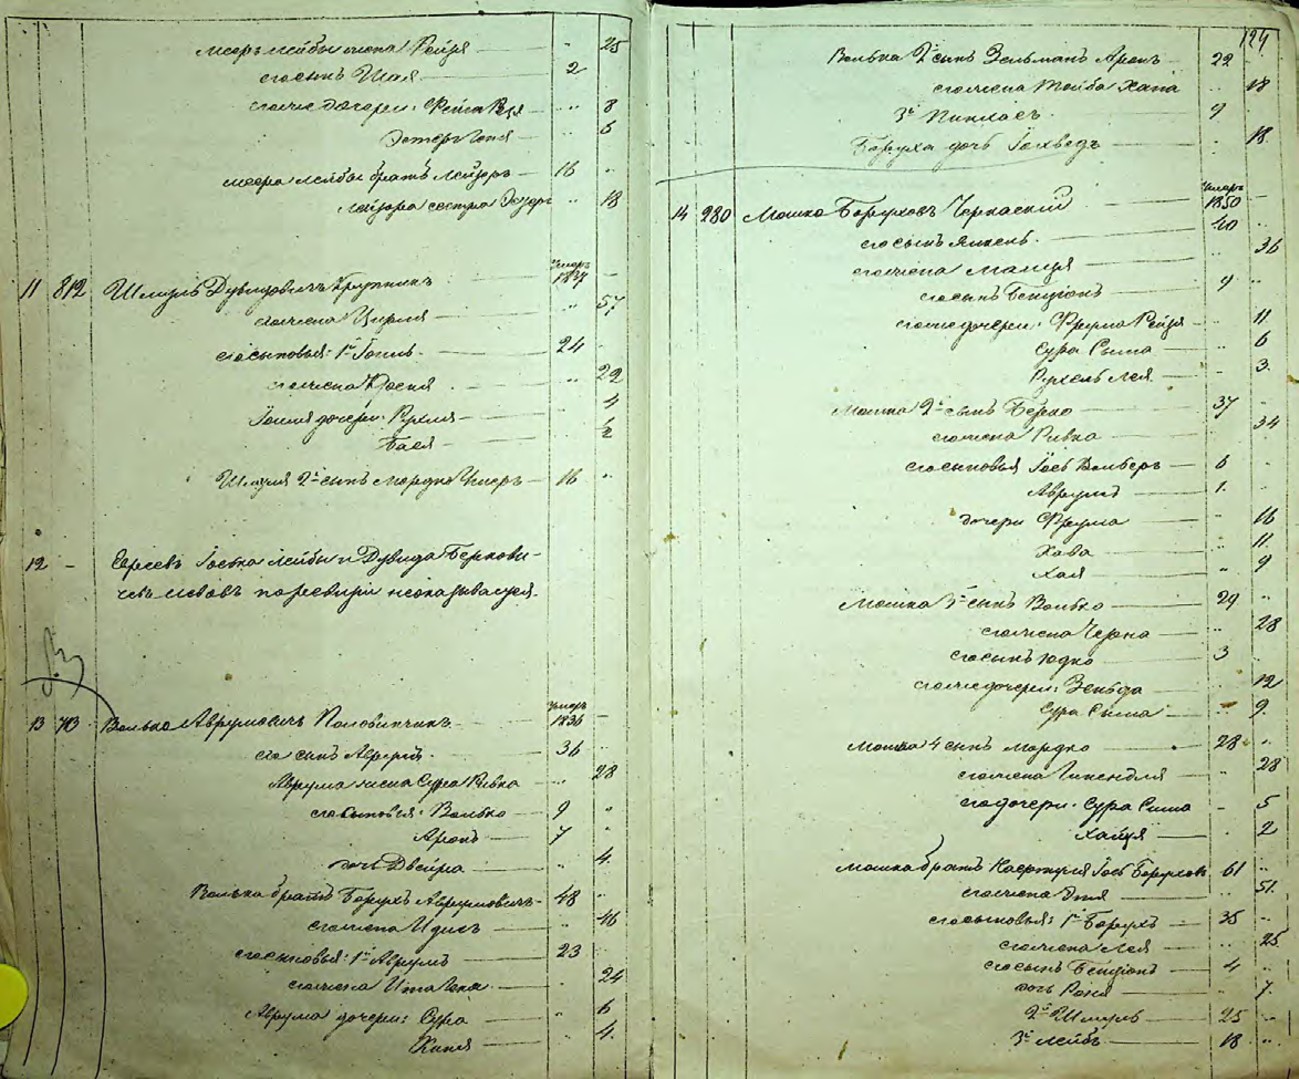 Меера Лейбы жена Рейзя — " 25
его сынъ Шая — 2
его же дочери: Фейга Рейзя — " 8
Эстеръ Геня " 6
Меера Лейбы братъ Лейзоръ — 16 "
Лейзора сестра Эстеръ " 18
11 812 Шмуль Дувидовичъ Крупникъ умеръ 1837 —
его жена Цирля — " 57
его сыновья: 1й Іосиль — 24
его жена Двося — " 22
Іосиля дочери: Рухля — " 4
Бася — " ½
Шмуля 2й сынъ Мордко умеръ — 16 "
12 — Евреевъ Іоська Лейбы и Дувида Беркови-
чевъ исковъ по ревизіи не оказывается.
13 713 Волько Аврумовичъ Половинчикъ умеръ 1836 —
его сынъ Аврумъ — 36 "
Аврума жена Сура Ривка — " 28
его сыновья: Волько — 9 "
Аронъ — 7 "
дочь Двейра — " 4
Волька братъ Борухъ Аврумовичъ — 48 "
его жена Идисъ — " 46
его сыновья: 1й Аврумъ — 23
его жена Ита Гена — " 24
Аврума дочери: Сура — " 6
Хана — " 4
124
Волька 2й сынъ Зельманъ Аронъ — 22
его жена Тойба Хана " 18
3й Пинхасъ — 9
Боруха дочь Іохведъ — " 18
14 280 Мошко Боруховъ Черкаскій — умеръ 1850 —
его сынъ Янкель — 40
его жена Малця — " 36
его сынъ Бенціонъ — 9 "
его же дочери: Фрума Рейзя — " 11
Сура Сима — " 6
Рухель Лея — " 3
Мошка 2й сынъ Берко — 37
его жена Ривка — " 34
его сыновья Іосъ Вольберъ — 6 "
Аврумъ — 1
дочери Фрума — " 16
Хава " 11
Хая — " 9
Мошка 3й сынъ Волько — 29 "
его жена Черна — " 28
его сынъ Юдко — 3
его же дочери: Зельда — " 12
Сура Сима — " 9
Мошка 4 сынъ Мордко — 28 "
его жена Гинендля — " 28
его дочери: Сура Сима — 5
Хайця — " 2
Мошка братъ Іосъ Боруховъ 61 "
его жена Этя — " 51
его сыновья: 1й Борухъ — 35 "
его жена Лея — " 25
его сынъ Бенціонъ — 4 "
дочь Раня — " 7
2й Шмуль — 25 "
3й Лейбъ — 18 "